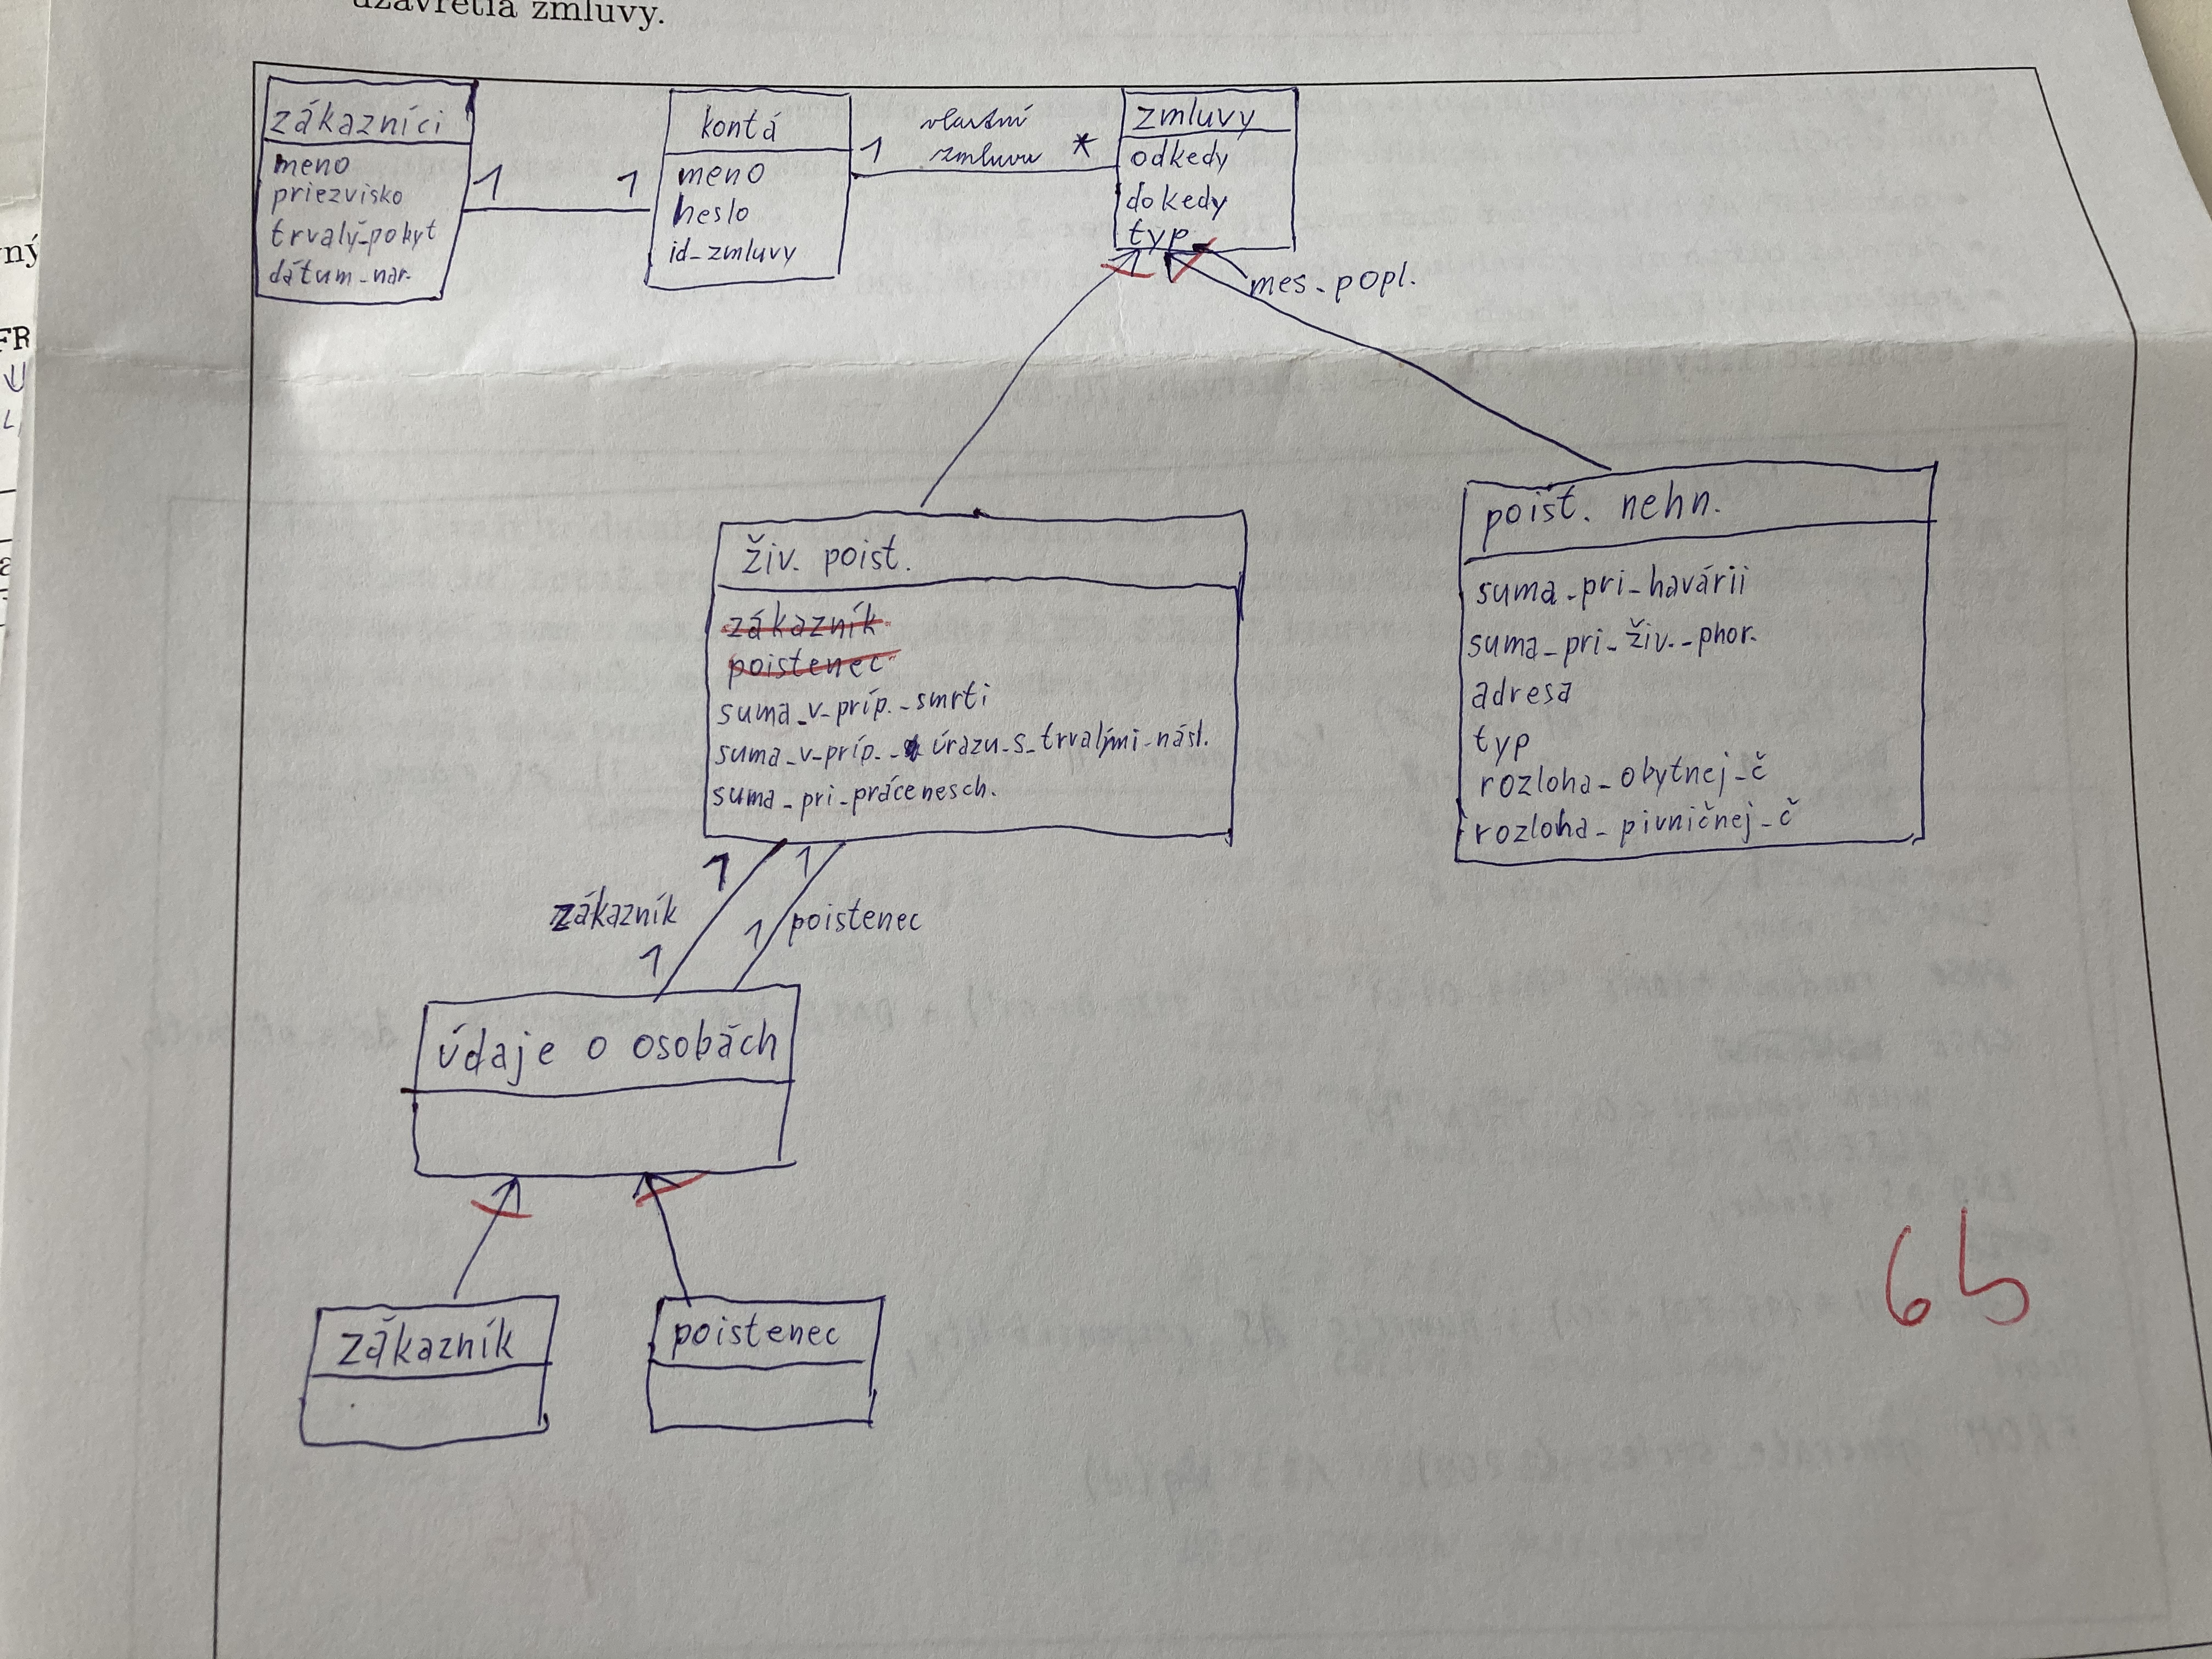 uzavretia zmluvy.
zákazníci
meno
priezvisko
trvalý-pobyt
dátum-nar.
1
1
kontá
meno
heslo
id-zmluvy
1
vlastní
zmluvu
*
zmluvy
odkedy
dokedy
typ
mes-popl.
živ. poist.
zákazník
poistenec
suma_v-príp.-smrti
suma-v-príp.-úrazu-s-trvalými-násl.
suma-pri-prácenesch.
poist. nehn.
suma-pri-havárii
suma-pri-živ.-phor.
adresa
typ
rozloha-obytnej-č
rozloha-pivničnej-č
zákazník
1
1
1
1
poistenec
údaje o osobách
zákazník
poistenec
6b